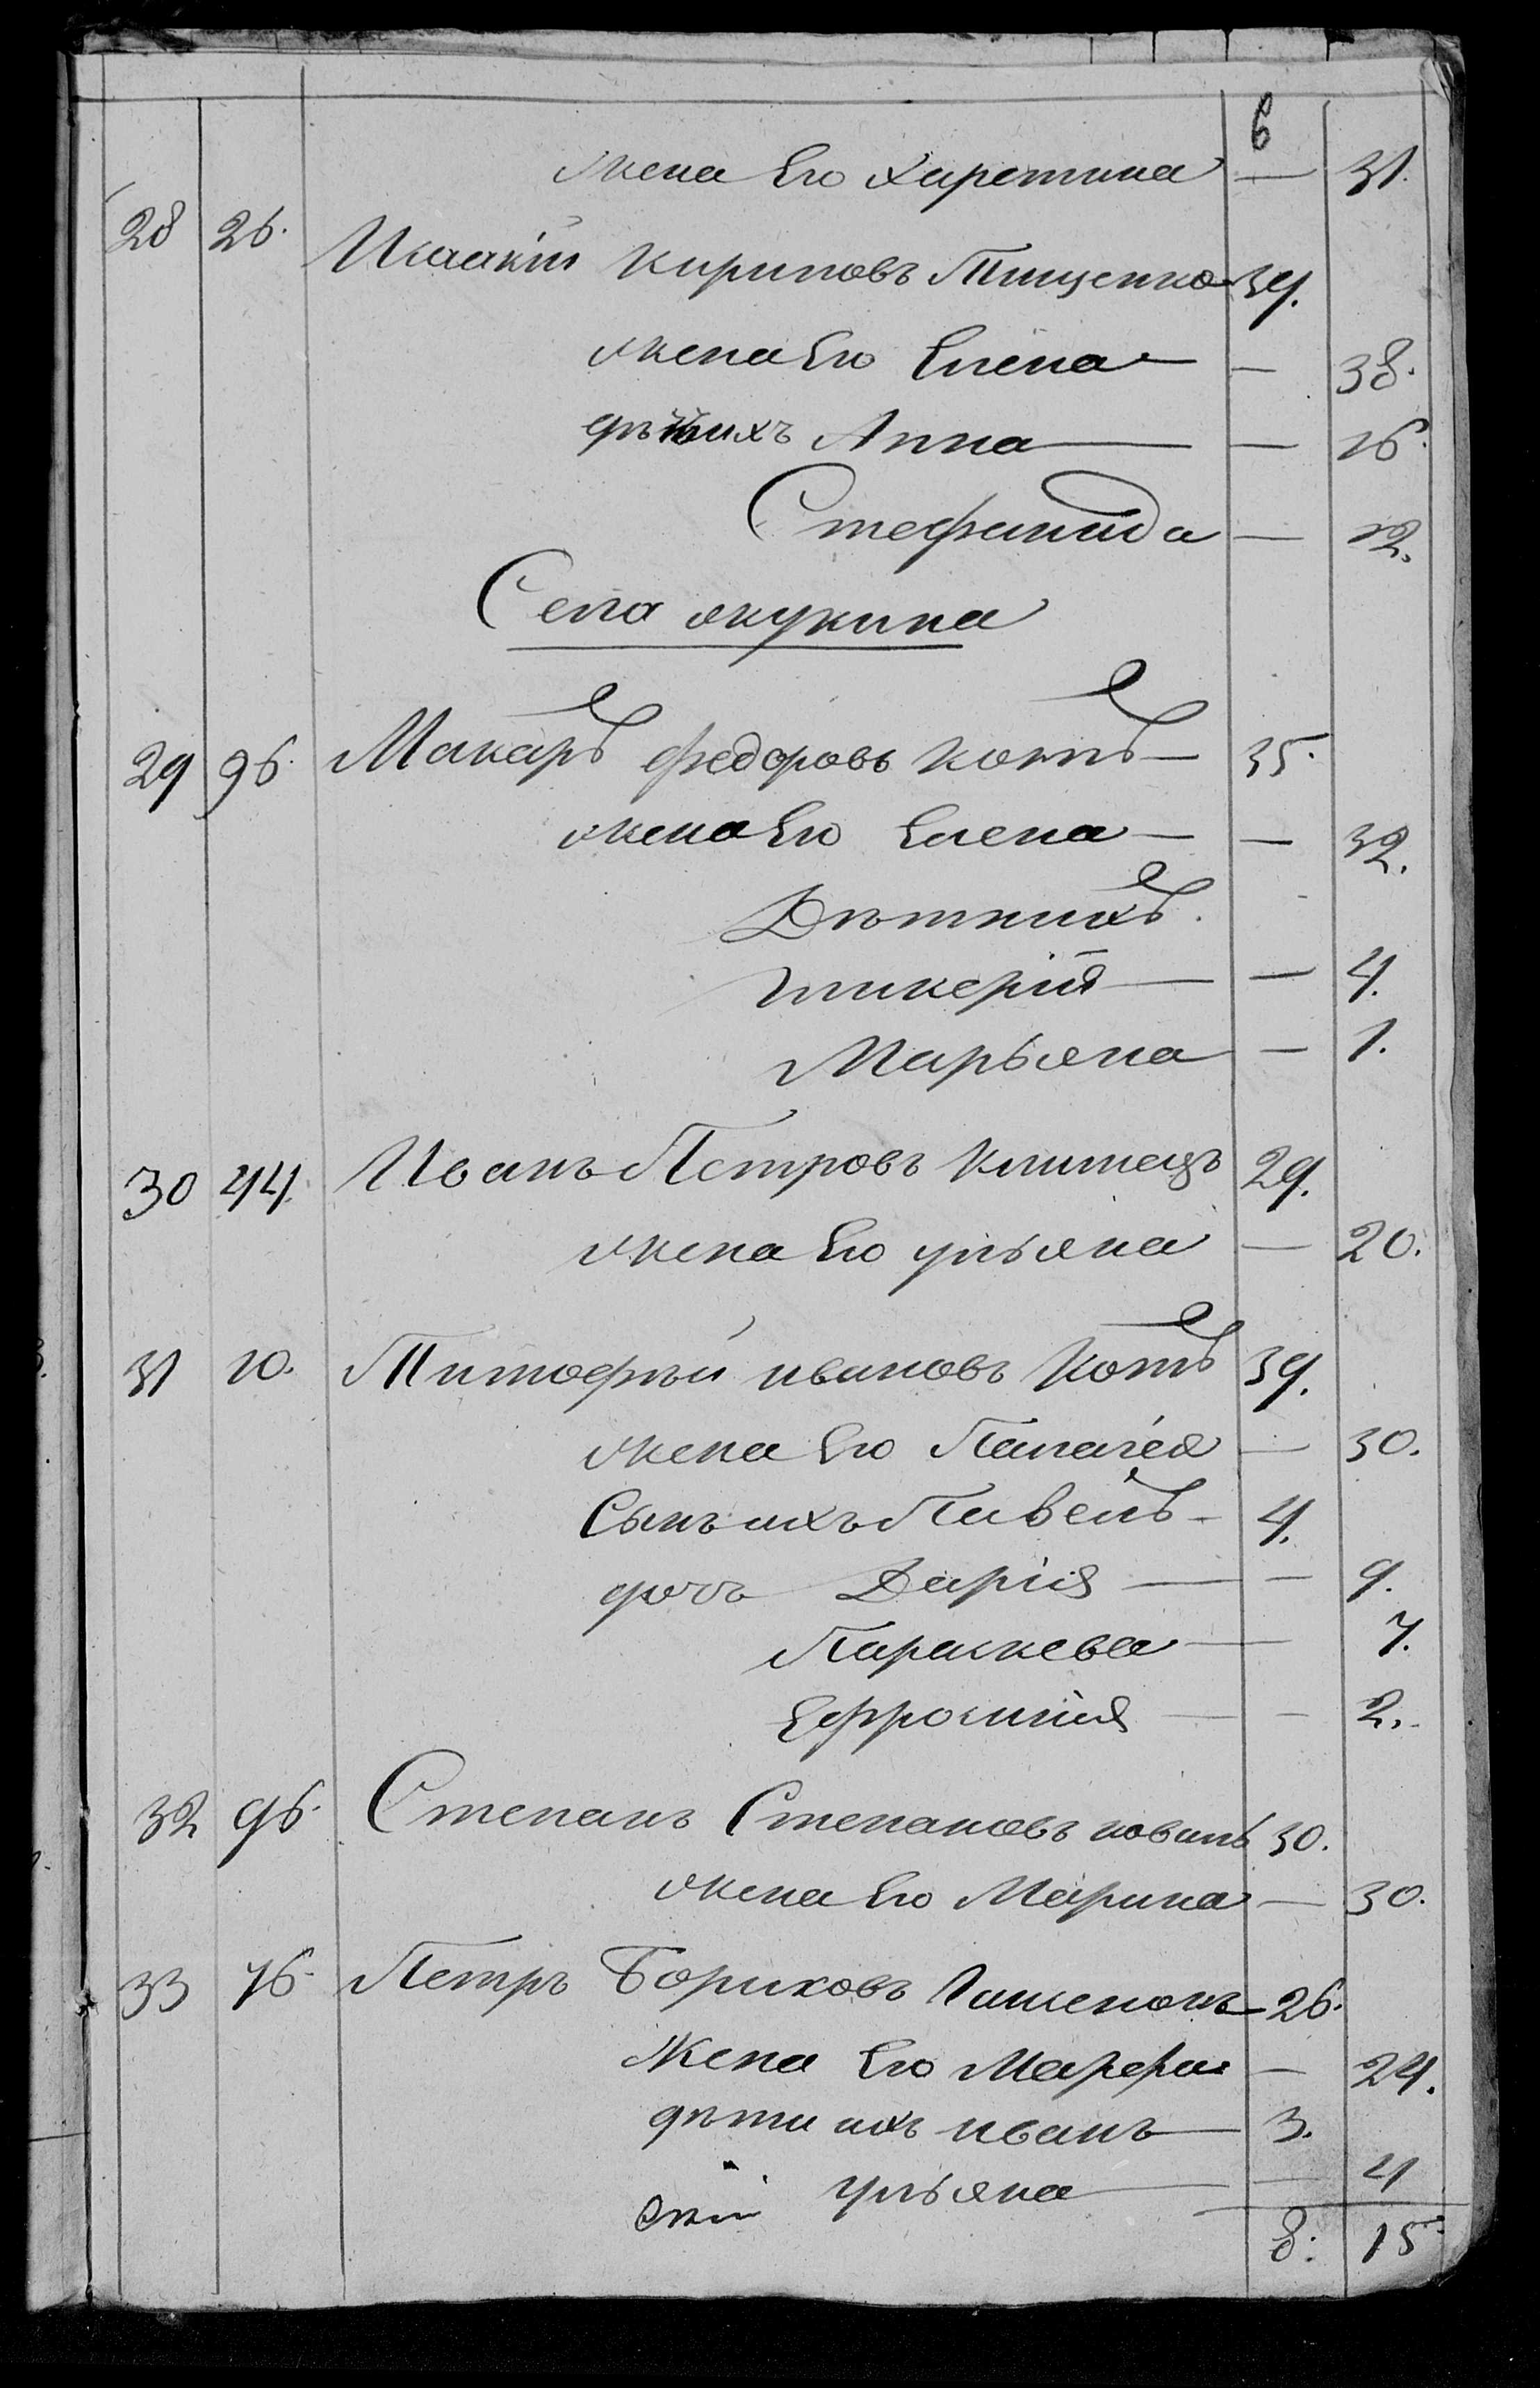 6
жена Его Харетина — 31.
28 26. Исаакій Кириловъ Тищенко 39.
жена Его Елена — — 38.
дѣти ихъ Анна — — 16.
Стефанида — 12.
Села Жукина
29 96. Макаръ Федоровъ Котъ — 35.
жена Его Елена — — 32.
Дѣти ихъ.
Гликерія — — 4.
Марьяна — 1.
30 44. Иванъ Петровъ Климецъ 29.
жена Его Ульяна — 20.
31 10. Тимофѣй Ивановъ Котъ 39.
жена Его Палагея — 30.
Сынъ ихъ Павелъ — 4.
дочь Дарія — — 9.
Параскева — 7.
Ефросинія — — 2.
32 96. Степанъ Степановъ Коваль 30.
жена Его Марина — 30.
33 76. Петръ Борисовъ 26.
Жена Его Марфа — 24.
дѣти ихъ Иванъ — 3.
Ульяна — — 4
8. 15